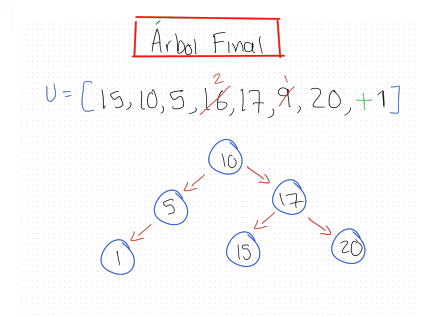 Árbol Final
2 1
U = [15, 10, 5, 16, 17, 9, 20, +1]
10
5 17
1 15 20